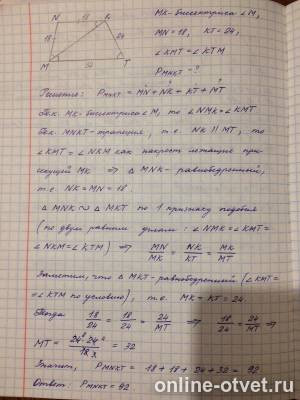 N 18 K
18 24
M 32 T
MK-биссектриса ∠M,
MN=18, KT=24,
∠KMT=∠KTM
P_MNKT = ?
Решение: P_MNKT = MN + NK + KT + MT
Т.к. MK-биссектриса ∠M, то ∠NMK=∠KMT
Т.к. MNKT-трапеция, т.е. NK || MT, то
∠KMT = ∠NKM как накрест лежащие при
секущей MK ⇒ △MNK-равнобедренный,
т.е. NK=MN=18.
△MNK ∾ △MKT по 1 признаку подобия
(по двум равным углам: ∠NMK=∠KMT=
∠NKM=∠KTM) ⇒ MN/MK = NK/KT = MK/MT
Заметим, что △MKT-равнобедренный (∠KMT=
=∠KTM по условию), т.е. MK=KT=24.
Тогда 18/24 = 18/24 = 24/MT ⇒ 18/24 = 24/MT ⇒
MT = 24·24/18 = 32
Значит, P_MNKT = 18+18+24+32 = 92
Ответ: P_MNKT = 92
online-otvet.ru